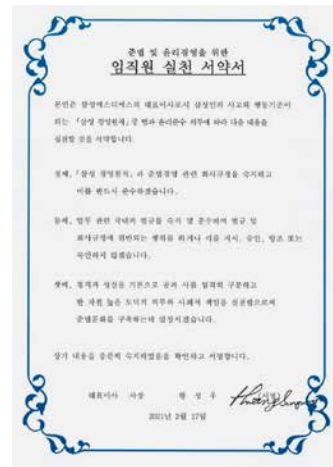 준법 및 윤리경영을 위한
임직원 실천 서약서
본인은 삼성에스디에스의 대표이사로서 삼성인의 사고와 행동기준이
되는 「삼성 경영원칙」중 법과 윤리준수 의무에 따라 다음 내용을
실천할 것을 서약합니다.
첫째, 「삼성 경영원칙」과 준법경영 관련 회사규정을 숙지하고
이를 반드시 준수하겠습니다.
둘째, 업무 관련 국내외 법규를 숙지 및 준수하며 법규 및
회사규정에 위반되는 행위를 하거나 이를 지시, 승인, 방조 또는
묵인하지 않겠습니다.
셋째, 정직과 성실을 기본으로 공과 사를 엄격히 구분하고
한 차원 높은 도덕적 의무와 사회적 책임을 실천함으로써
준법문화를 구축하는데 앞장서겠습니다.
상기 내용을 충분히 숙지하였음을 확인하고 서명합니다.
대표이사 사장 황 성 우
2021년 2월 17일